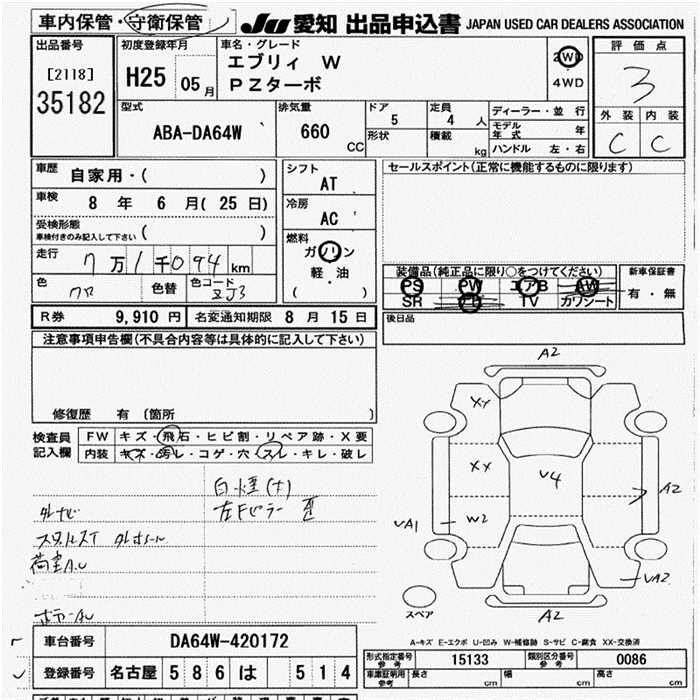 車内保管・守衛保管 JU 愛知 出品申込書 JAPAN USED CAR DEALERS ASSOCIATION
出品番号
[2118]
35182
初度登録年月
H25 05月
車名・グレード
エブリィ W
PZターボ
2WD
4WD
評価点
3
外装 内装
C C
型式
ABA-DA64W
排気量
660
CC
ドア
5
定員
4 人
形状
積載
kg
ディーラー・並行
モデル年式 年
ハンドル 左・右
車歴
自家用・( )
車検
8 年 6 月( 25 日)
受検形態
車検付きのみ記入して下さい ( )
走行
7万1千094km
色
色替
色コード
ZJ3
シフト
AT
冷房
AC
燃料
ガソリン
軽・油
( )
セールスポイント(正常に機能するものに限ります)
装備品(純正品に限り○をつけてください)
PS PW エアB AW
SR TV カワシート
新車保証書
有・無
R券 9,910 円 名変通知期限 8 月 15 日
後日品
注意事項申告欄(不具合内容等は具体的に記入して下さい)
修復歴 有 〔箇所
検査員
記入欄
FW キズ・飛石・ヒビ割・リペア跡・X要
内装 キズ・汚レ・コゲ・穴・スレ・キレ・破レ
白煙(大)
外ナビ
左Fピラー歪
A2
XX
XX
V4
W2
VA1
A2
VA2
A2
スペア
A-キズ E-エクボ U-凹み W-補修跡 S-サビ C-腐食 XX-交換済
車台番号 DA64W-420172
登録番号 名古屋 586 は 514
形式指定番号 参考 15133 類別区分番号 参考 0086
車庫証明用 参考 長さ cm 幅 cm 高さ cm